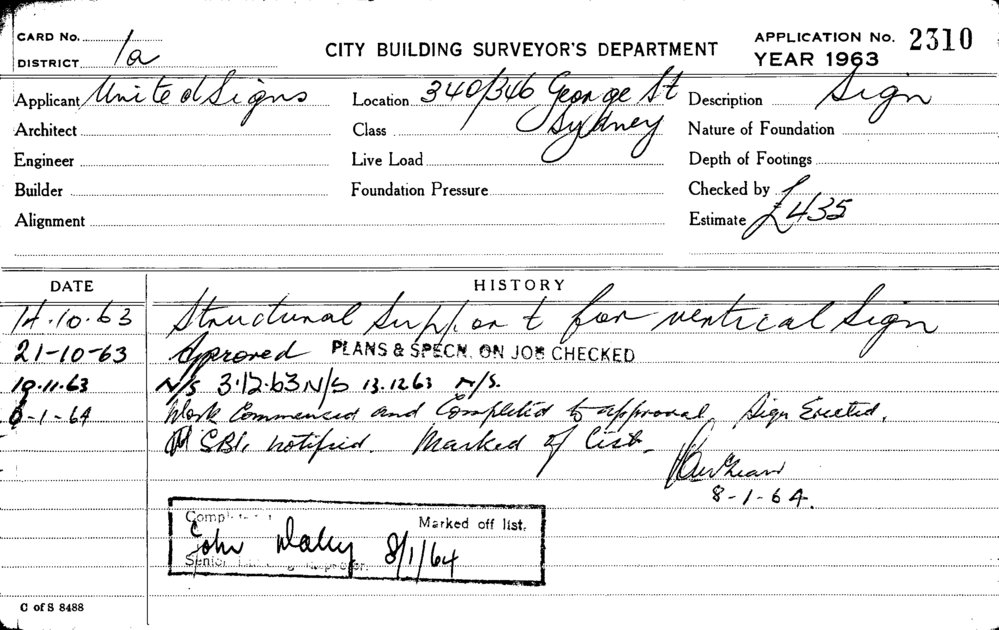 CARD No.
DISTRICT 1a
CITY BUILDING SURVEYOR'S DEPARTMENT
APPLICATION No. 2310
YEAR 1963
Applicant United Signs
Location 340/346 George St
Sydney
Description Sign
Architect
Class
Nature of Foundation
Engineer
Live Load
Depth of Footings
Builder
Foundation Pressure
Checked by
Alignment
Estimate £435
DATE HISTORY
14.10.63 Structural Support for vertical Sign
21-10-63 Approved PLANS & SPECN. ON JOB CHECKED
19.11.63 N/S 3.12.63 N/S 13.12.63 N/S.
8-1-64 Work Commenced and Completed to approval. Sign Erected.
SBI. notified. Marked of List.
8-1-64.
Marked off list.
John Daley 8/1/64
Senior
C of S 8488